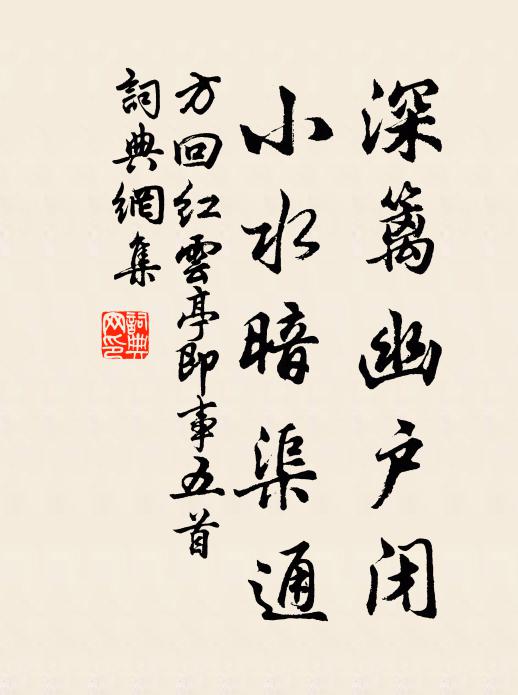 深篱幽户闭
小水暗渠通
方回红雲亭即事五首
詞典網集
詞典網印